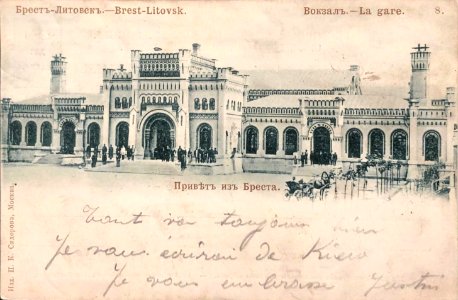 Брестъ-Литовскъ.—Brest-Litovsk. Вокзалъ.—La gare. 8.
Привѣтъ изъ Бреста.
Изд. П. К. Сидорова, Москва.
Tout va toujours bien
Je vous écrirai de Kiew
Je vous embrasse Justin